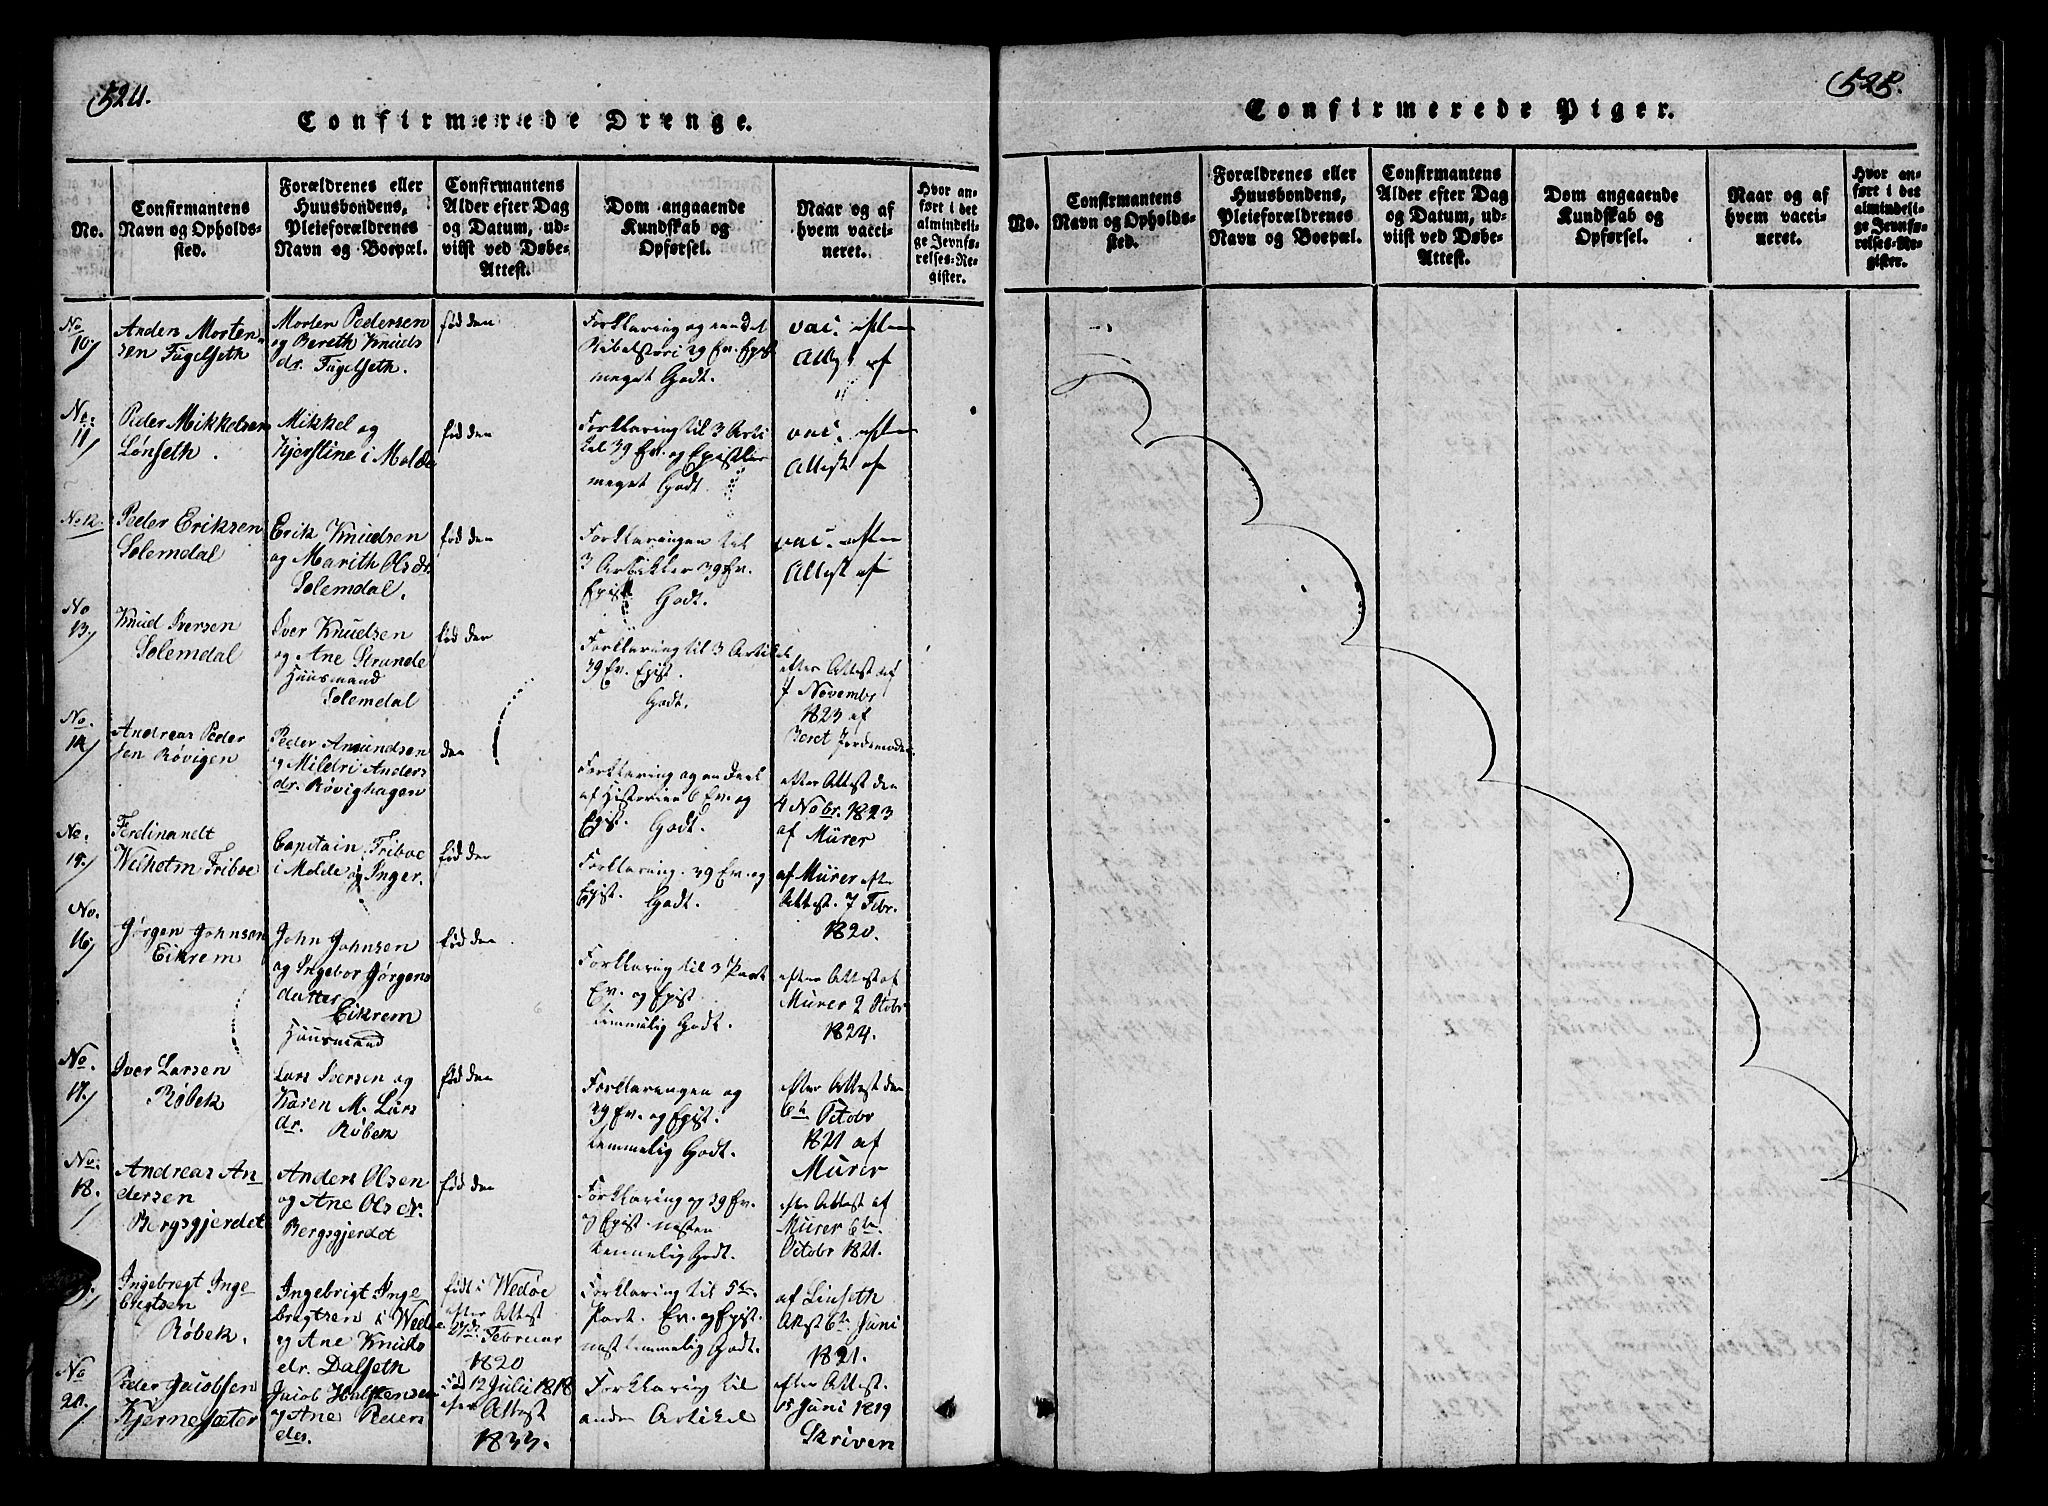 524.
Confirmerede Drenge.
No.
Confirmantens
Navn og Opholds-
sted.
Forældrenes eller
Huusbondens,
Pleieforældrenes
Navn og Boepæl.
Confirmantens
Alder efter Dag
og Datum, ud-
viist ved Døbe-
Attest.
Dom angaaende
Kundskab og
Opførsel.
Naar og af
hvem vacci-
neret.
Hvor an-
ført i det
almindeli-
ge Jevnfø-
relses-Re-
gister.
No
10
Anders Morten-
sen Fugelseth
Morten Pedersen
og Bereth Knuds
dr. Fugelseth.
fød den
Forklaring og
Bibelstori 39 Ev. Epist
meget Godt.
vac. efter
Attest af
No.
11
Peder Mikkelsen
Lønseth.
Mikkel og
Kjerstine i Molde
fød den
Forklaring til 3 Arti
kel 39 Ev. og Epistler
meget Godt.
vac. efter
Attest af
No 12.
Peder Eriksen
Solemdal
Erik Knudsen
og Marith Olsdr.
Solemdal.
fød den
Forklaringen til
3 Artikler 39 Ev.
Epist. Godt.
vac. efter
Attest af
No
13
Knud Iversen
Solemdal
Iver Knudsen
og Ane Strande
Huusmand
Solemdal
fød den
Forklaring til 3 Artikl
39 Ev. Epist.
Godt.
efter Attest af
7 Novembr
1823 af
Beret Jordemoder
No.
14
Andreas Peder
sen Røvigen
Peder Amundsen
og Mildri Anders
dr. Røvighagen
den
Forklaring og en Deel
af Historien 6 Ev. og
Epist. Godt.
efter Attest den
4 Nobr. 1823
af Mürer
No.
15
Ferdinandt
Welhelm Friboe
Capitain Friboe
i Molde og Inger.
fød den
Forklaring. 39 Ev. og
Epist. Godt.
af Mürer efter
Attest. 7 Febr.
1820.
No.
16
Jørgen Johnsen
Eikrem
John Johnsen
og Ingebor Jørgens
datter
Eikrem
Huusmand
fød den
Forklaring til 3 Part
Ev. og Epist.
temmelig Godt.
efter Attest af
Mürer 2 Octobr
1824.
No.
17
Iver Larsen
Røbek
Lars Iversen og
Karen M. Lars
dr. Røbek
fød den
Forklaringen og
39 Ev. og Epist.
temmelig Godt.
efter Attest den
6te Octobr
1821 af
Mürer
No.
18.
Andreas An-
dersen
Bergsgjerdet
Anders Olsen
og Ane Olsdr.
Bergsgjerdet
fød den
Forklaring og 39 Ev.
og Epist. nesten
temmelig Godt.
efter Attest af
Mürer 6te
Octobr 1821.
Ingebregt Inge-
brigtsen
Røbek.
Ingebrigt Inge
brigtsen i Wedøe
og Ane Knuds
dr. Dalseth
født i Wedøe
efter Attest
Februar
1820
Forklaring til 5te
Part. Ev. og Epist.
nest temmelig Godt.
af Linseth
Attest 6te Juni
1821.
No
20.
Peder Jacobsen
Kjernesæter
Jacob Halstensen
og Ane Peders
der.
fød 12 Julii 1818
efter Attest
1833.
Forklaring til
anden Artikel
efter Attest.
15 Juni 1819
Skriven
525.
Confirmerede Piger.
No.
Confirmantens
Navn og Opholds-
sted.
Forældrenes eller
Huusbondens,
Pleieforældrenes
Navn og Boepæl.
Confirmantens
Alder efter Dag
og Datum, ud-
viist ved Døbe-
Attest.
Dom angaaende
Kundskab og
Opførsel.
Naar og af
hvem vacci-
neret.
Hvor an-
ført i det
almindeli-
ge Jevnfø-
relses-Re-
gister.